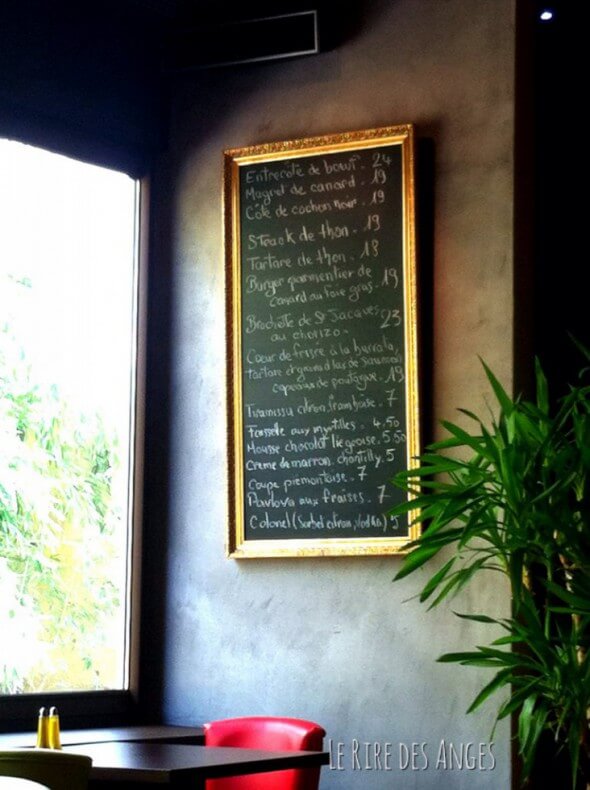 Entrecôte de bœuf. 24
Magret de canard. 19
Côte de cochon noir. 19
Steack de thon. 19
Tartare de thon. 18
Burger parmentier de
canard au foie gras. 19
Brochette de St Jacques
au chorizo. 23
Coeur de frisée à la burrata,
tartare d'agrand de saumon
copeaux de poutargue. 19
Tiramisu citron, framboise. 7
Faisselle aux myrtilles. 4,50
Mousse chocolat liégeoise. 5,50
Creme de marron, chantilly. 5
Coupe piemontaise. 7
Pavlova aux fraises. 7
Colonel (Sorbet citron, Vodka) 5
LE RIRE DES ANGES